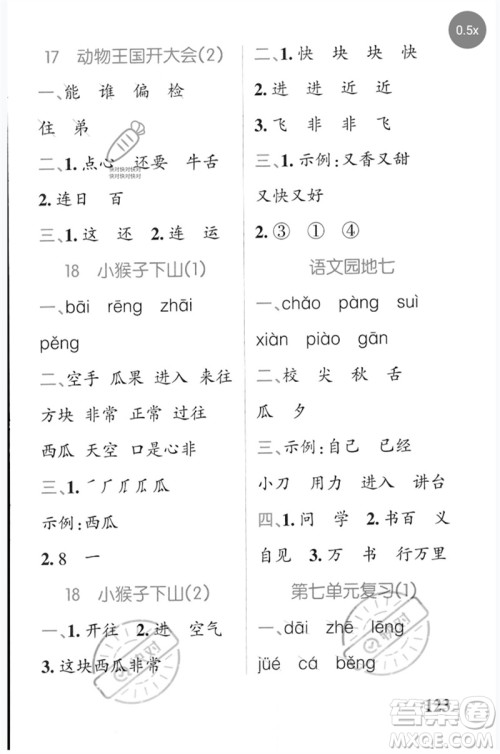 0.5x
17 动物王国开大会(2)
一、能 谁 偏 检
住 弟
二、1.点心 还要 牛舌
2.连日 百
三、1.这 还 2.还 连 运
18 小猴子下山(1)
一、bāi rēng zhāi
pěng
二、空手 瓜果 进入 来往
方块 非常 正常 过往
西瓜 天空 口是心非
示例:西瓜
2.8 一
18 小猴子下山(2)
一、1.开往 2.进 空气
3.这块西瓜非常
二、1.快 块 块 快
2.进 进 近 近
3.飞 非 非 飞
三、1.示例:又香又甜
又快又好
2.③ ① ④
语文园地七
一、chǎo pàng suì
xiàn piào gān
二、校 尖 秋 舌
瓜 夕
三、示例:自己 已经
小刀 用力 进入 讲台
四、1.问 学 2.书百 义
自见 3.万 书 有
第七单元复习(1)
一、dāi zhē lēng
jüé cá běng
123
快对快对快对
快对快对快对
答案圈
MXQE.COM